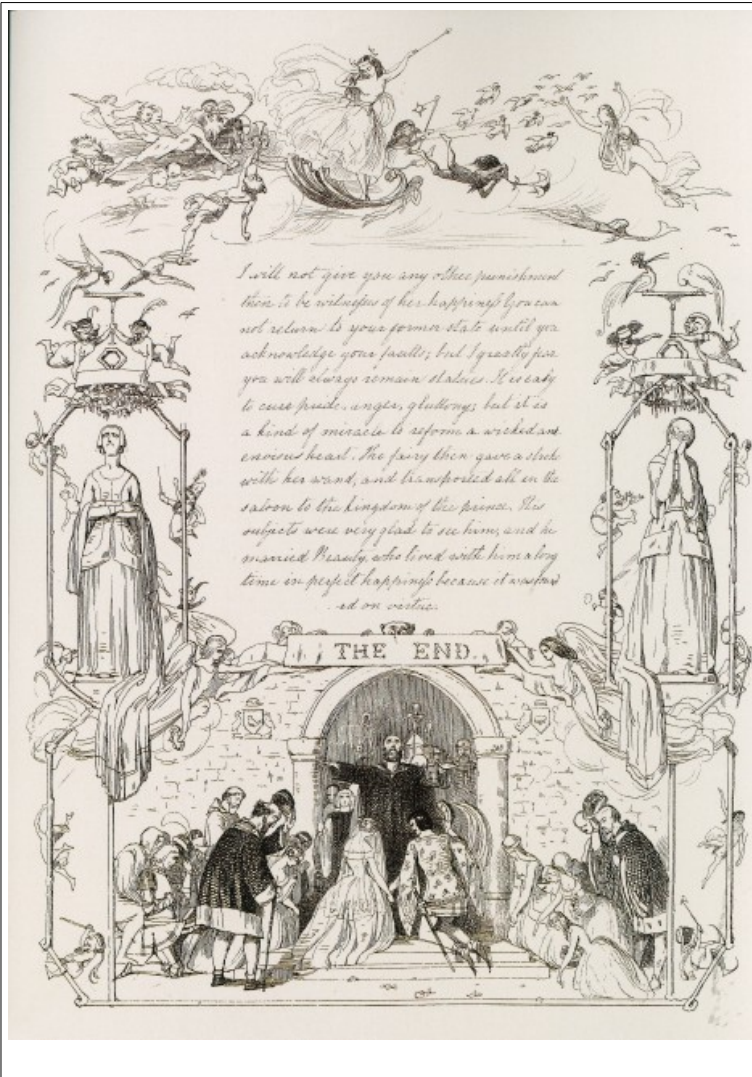 I will not give you any other punishment
than to be witnesses of her happiness. You can
not return to your former state until you
acknowledge your faults; but I greatly fear
you will always remain statues. It is easy
to cure pride, anger, gluttony; but it is
a kind of miracle to reform a wicked and
envious heart. The fairy then gave a stroke
with her wand, and transported all in the
saloon to the kingdom of the prince. His
subjects were very glad to see him, and he
married Beauty, who lived with him a long
time in perfect happiness because it was found
ed on virtue.
THE END.